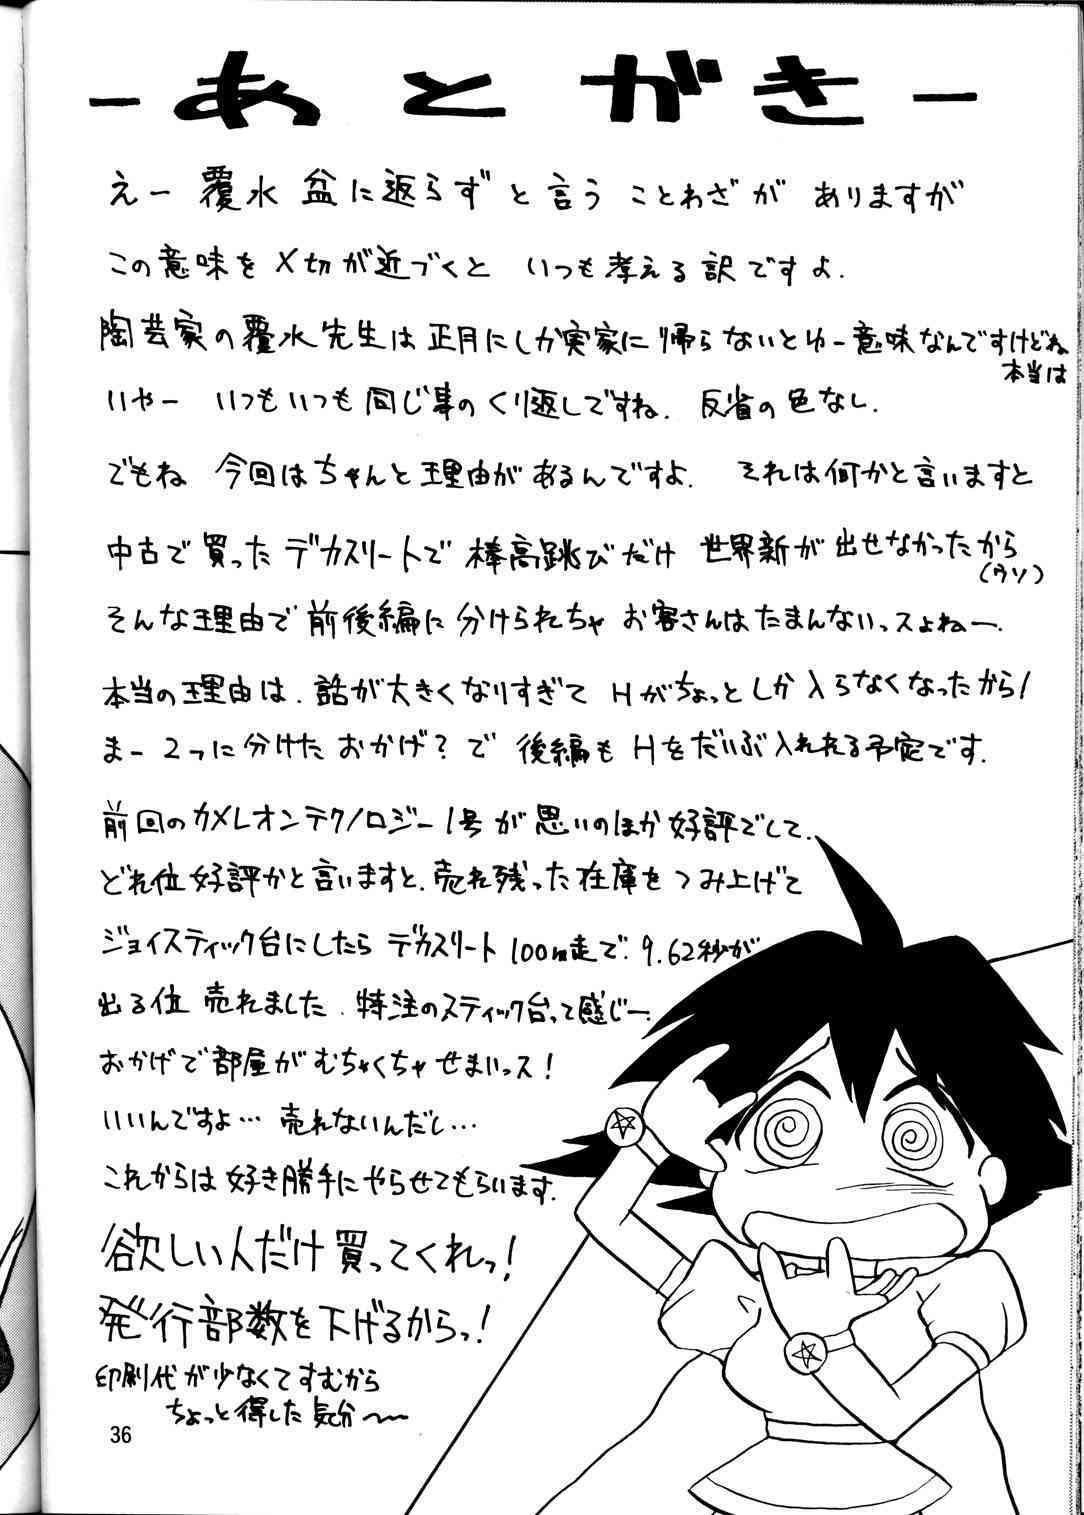 ーあとがきー
えー 覆水盆に返らずと言う ことわざが ありますが
この意味を〆切が近づくと いつも考える訳ですよ.
陶芸家の覆水先生は正月にしか実家に帰らないとゆー意味なんですけどね
本当は
いやー いつもいつも同じ事のくり返しですね. 反省の色なし.
でもね 今回はちゃんと理由があるんですよ. それは何かと言いますと
中古で買ったデカスリートで棒高跳びだけ 世界新が出せなかったから
(ウソ)
そんな理由で前後編に分けられちゃ お客さんはたまんないっスよねー.
本当の理由は、話が大きくなりすぎて Hがちょっとしか入らなくなったから!
まー 2つに分けたおかげ?で 後編もHをだいぶ入れれる予定です.
前回のカメレオンテクノロジー1号が思いのほか好評でして、
どれ位好評かと言いますと、売れ残った在庫をつみ上げて
ジョイスティック台にしたら デカスリート100m走で、9.62秒が
出る位 売れました、特注のスティック台って感じー.
おかげで部屋がむちゃくちゃせまいっス!
いいんですよ… 売れないんだし…
これからは好き勝手にやらせてもらいます.
欲しい人だけ買ってくれっ!
発行部数を下げるからっ!
印刷代が少なくてすむから
ちょっと得した気分〜
36